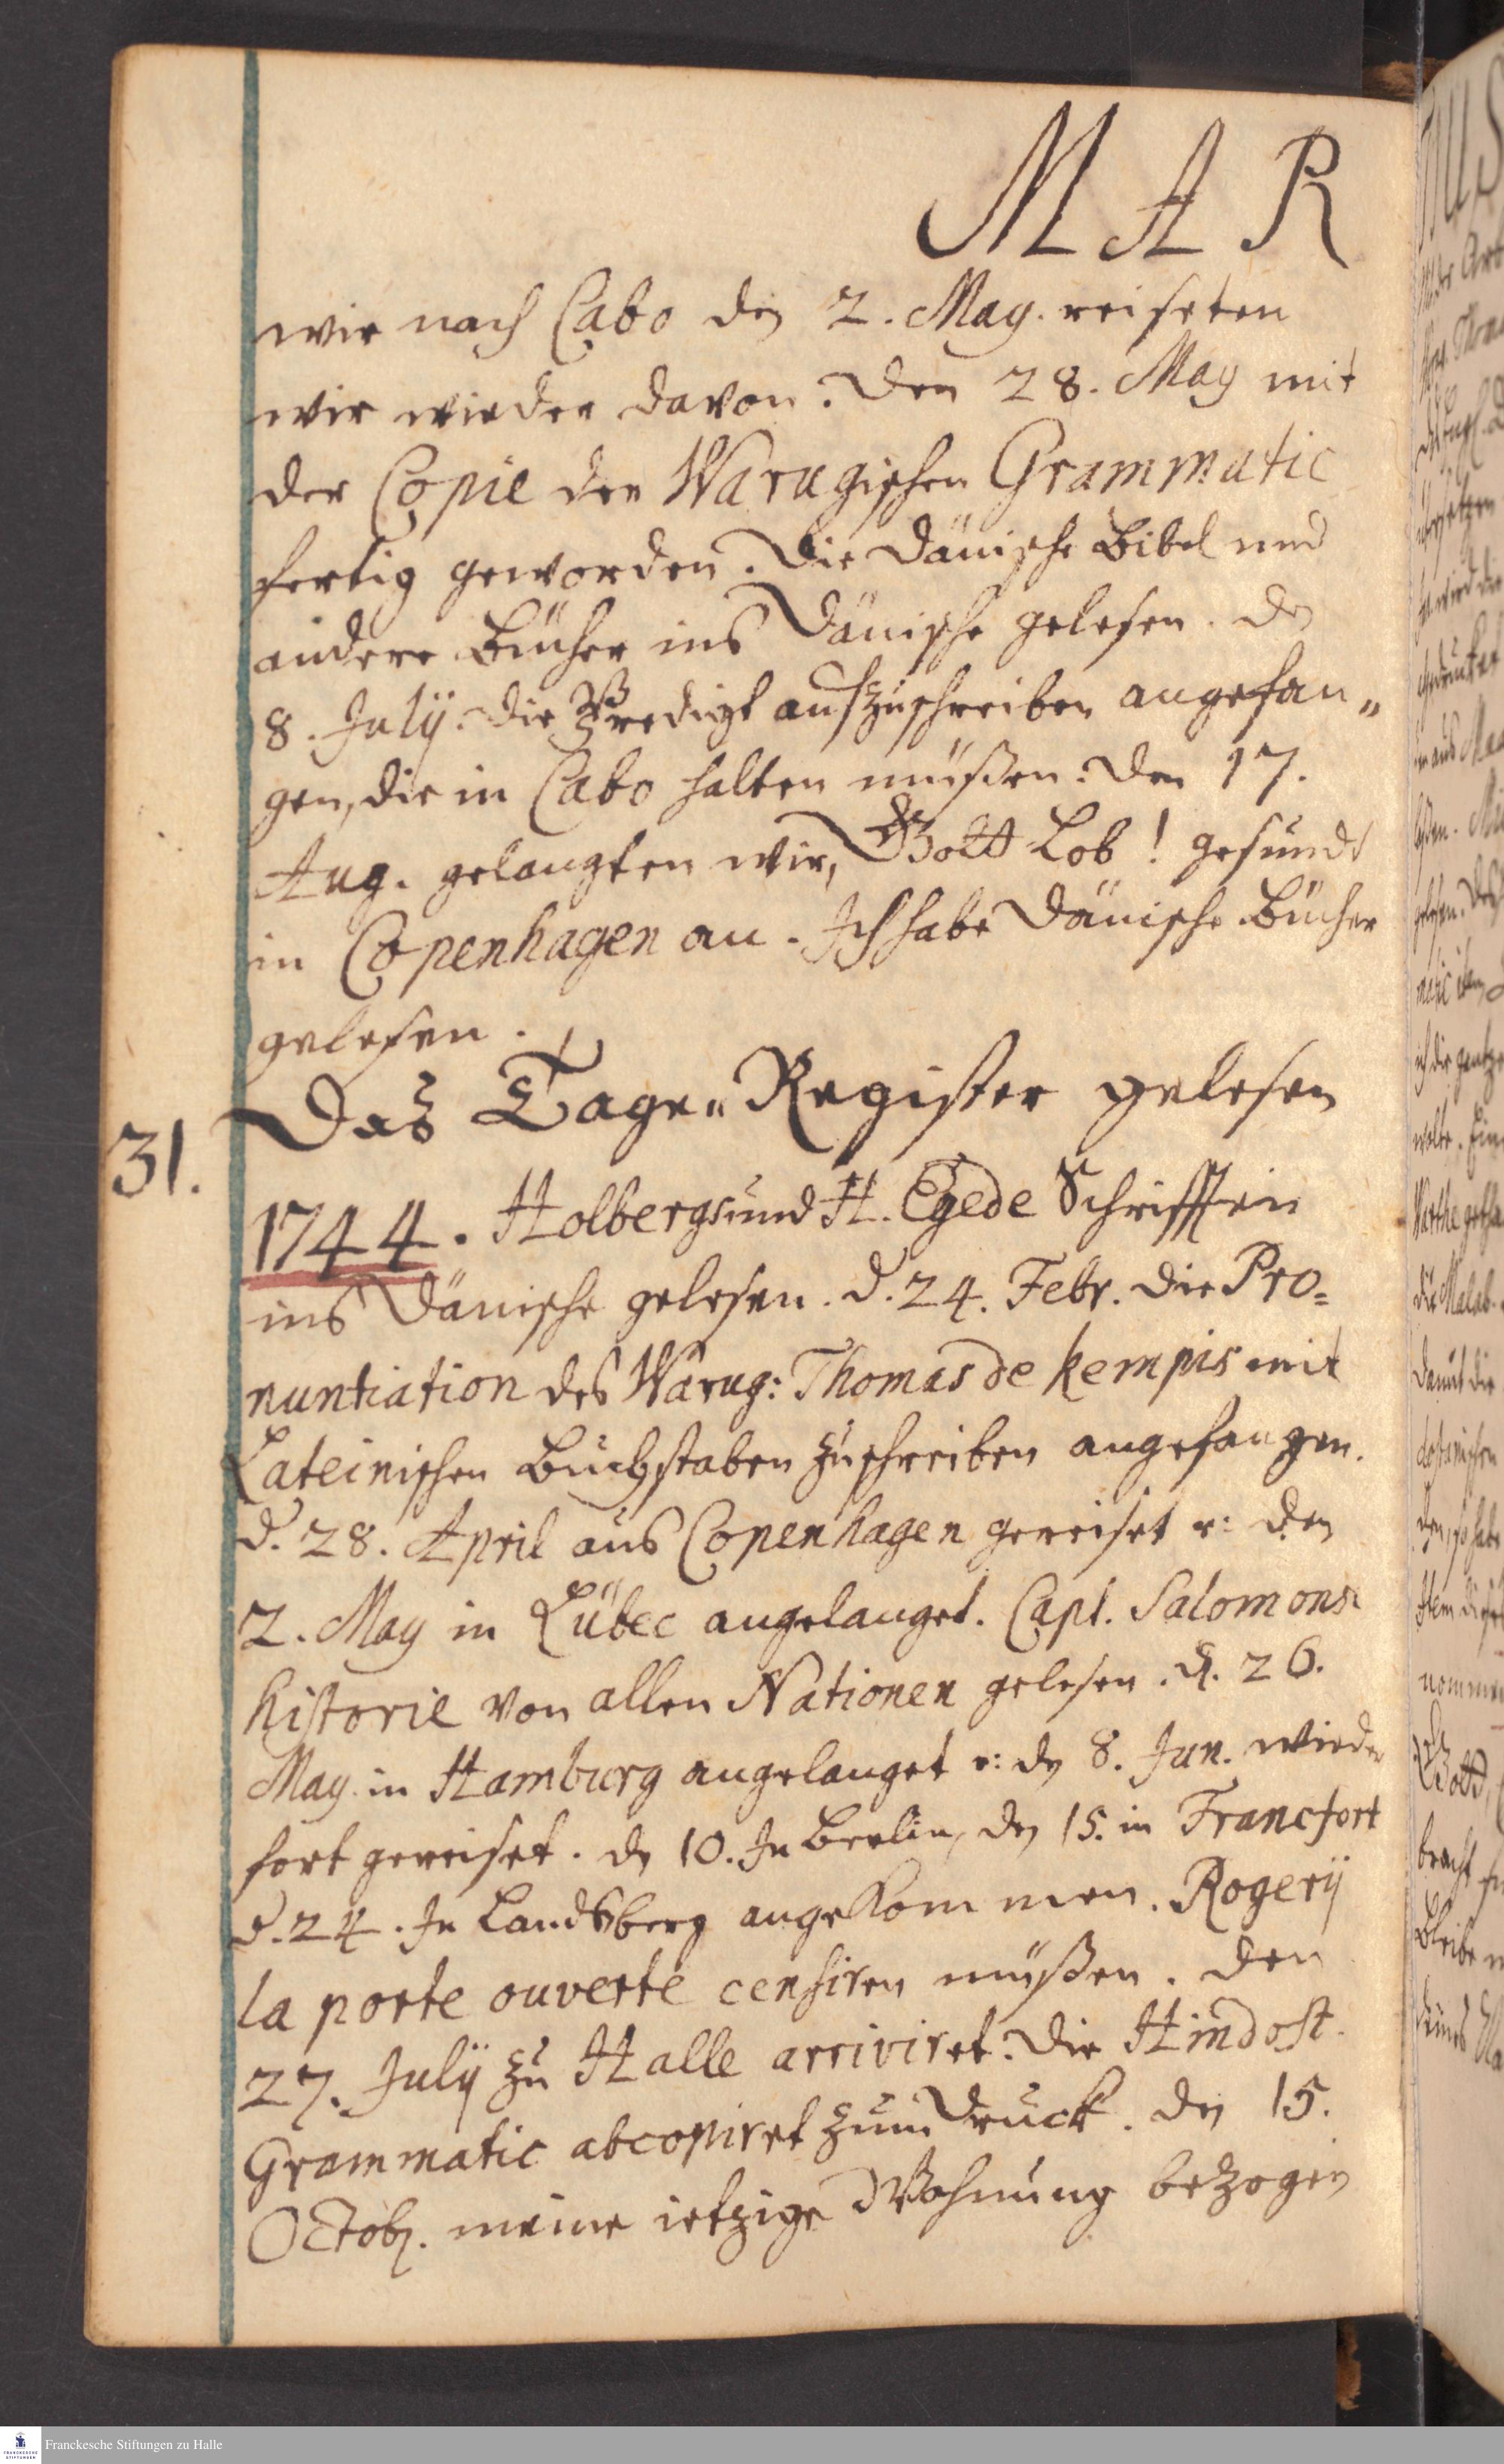 MAR
wir nach Cabo den 2. May. reiseten
wir wieder davon. Den 28. May mit
der Copie der Warugischen Grammatic
fertig geworden. Die Dänische Bibel und
andere Bücher ins Dänische gelesen. den
8. Julÿ. die Predigt aufzuschreiben angefan„
gen, die in Cabo halten müßen. Den 17.
Aug. gelangten wir, Gott Lob! gesundt
in Copenhagen an. Ich habe Dänische Bücher
gelesen.
31. Das Tage„Register gelesen
1744. Holbergs und H. Egede Schrifften
ins Dänische gelesen. d. 24. Febr. die Pro=
nuntiation des Warug: Thomas de Kempis mit
Lateinischen Buchstaben zuschreiben angefangen.
d. 28. April aus Copenhagen gereiset u: den
2. May in Lübec angelanget. Capt. Salomons
historie von allen Nationen gelesen. d. 26.
May. in Hamburg angelanget u: den 8. Jun. wieder
fort gereiset. den 10. In Berlin, den 15. in Francfort
d. 24. In Landsberg angekommen. Rogerÿ
la porte ouverte censiren müßen. Den
27. Julÿ zu Halle arriviret. Die Hindost.
Grammatic abcopiret zum Druck. den 15.
Octob. meine ietzige Wohnung bezogen
Franckesche Stiftungen zu Halle